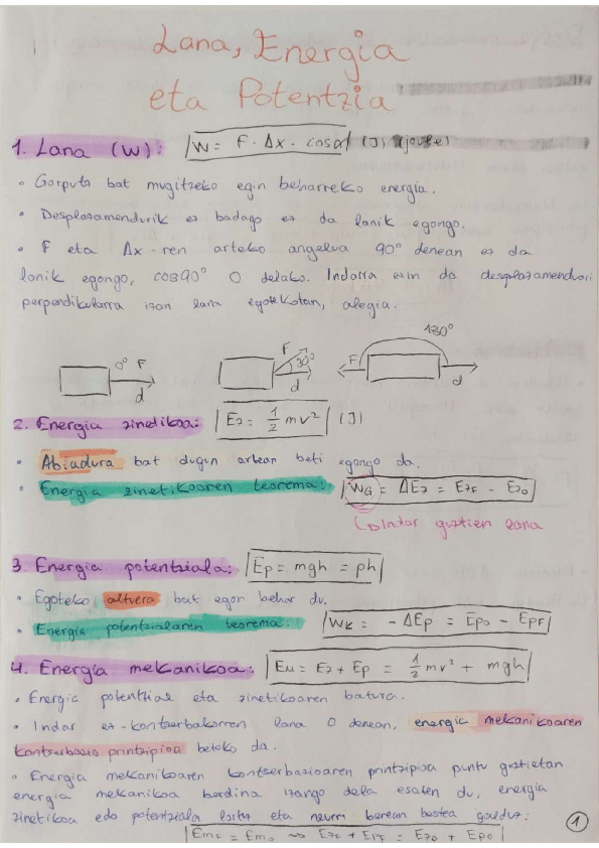 Lana, Energia
eta Potentzia
1. Lana (W): W = F · Δx · cosα (J) (joule)
• Gorputz bat mugitzeko egin beharreko energia.
• Desplazamendurik ez badago ez da lanik egongo.
• F eta Δx-ren arteko angelua 90° denean ez da
lanik egongo, cos90° 0 delako. Indarra ezin da desplazamenduari
perpendikularra izan lana egotekotan, alegia.
0° F
d
F 30°
d
180°
F
d
2. Energia zinetikoa: Ez = 1/2 mv² (J)
• Abiadura bat dugun artean beti egongo da.
• Energia zinetikoaren teorema: WG = ΔEz = EzF - Ez0
Indar guztien lana
3. Energia potentziala: Ep = mgh = ph
• Egoteko altuera bat egon behar du.
• Energia potentzialaren teorema: WK = - ΔEp = Ep0 - EpF
4. Energia mekanikoa: EM = Ez + Ep = 1/2 mv² + mgh
• Energia potentzial eta zinetikoaren batura.
• Indar ez-kontserbakorren lana 0 denean, energia mekanikoaren
kontserbazio printzipioa beteko da.
• Energia mekanikoaren kontserbazioaren printzipioa puntu guztietan
energia mekanikoa berdina izango dela esaten du, energia
zinetikoa edo potentziala igotz eta neurri berean bestea galduz:
= Em0 ⇝ EzF + EpF = Ez0 + Ep0
1